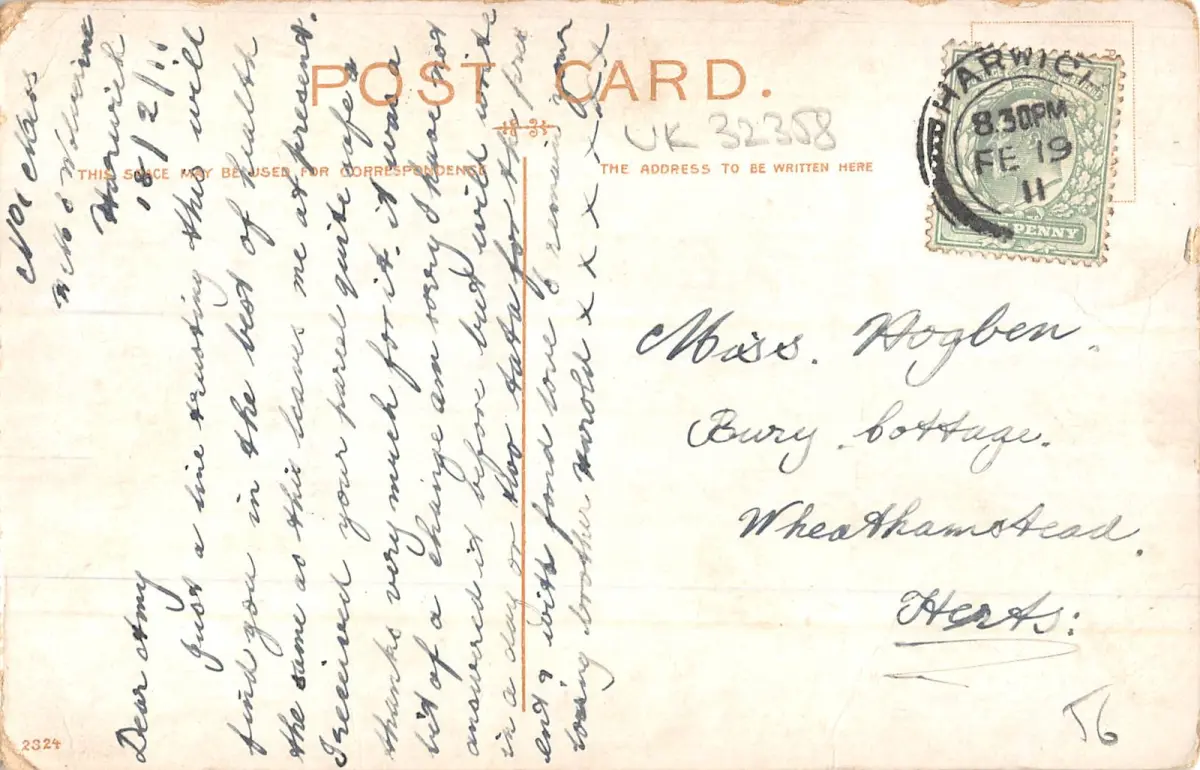 POST CARD.
UK 32358
THIS SPACE MAY BE USED FOR CORRESPONDENCE
THE ADDRESS TO BE WRITTEN HERE
HARWICH
8.30PM
FE 19
11
PENNY
Mess
Harwich
18/2/11
Dear Amy
Just a line trusting this will
find you in the best of health
the same as this leaves me at present.
I received your parcel quite safe &
thanks very much for it. it was a
bit of a change am sorry I have not
answered it before but will write
in a day or two tata for the pre
ent & with fond love & remain your
loving brother Harold x x x x x x x x
Miss. Hogben.
Bury Cottage.
Wheathamstead.
Herts:
56
2324